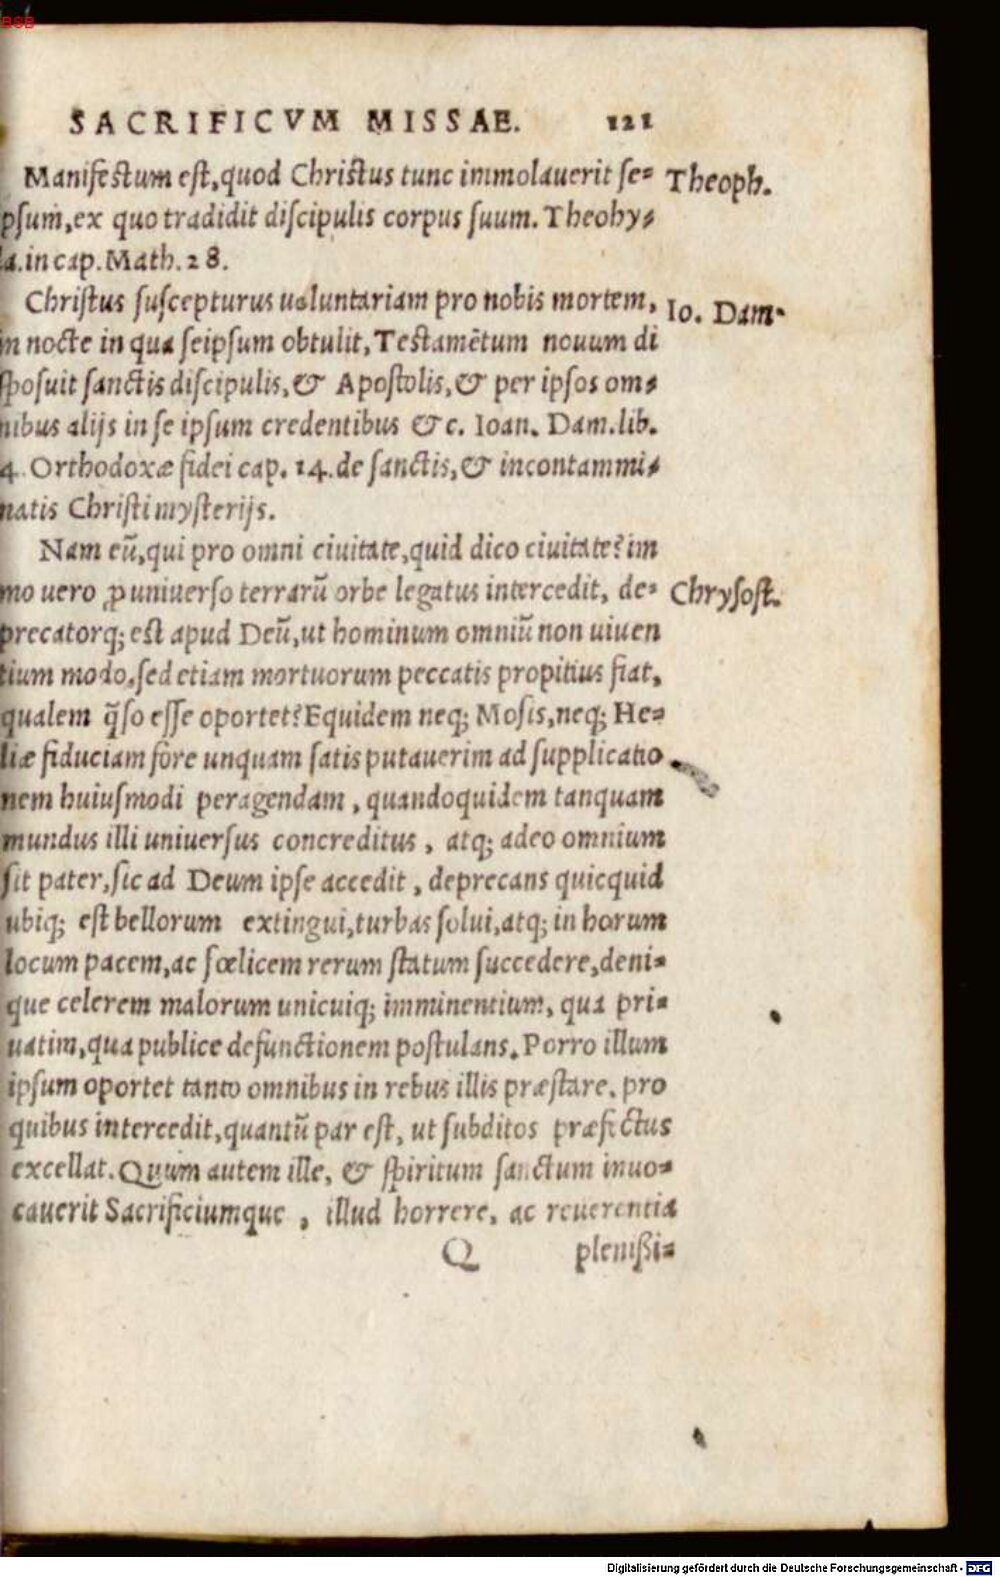 BSB
SACRIFICVM MISSAE. 121
Manifestum est, quod Christus tunc immolauerit se= Theoph.
psum, ex quo tradidit discipulis corpus suum. Theohy=
la. in cap. Math. 28.
Christus suscepturus uoluntariam pro nobis mortem, Io. Dam.
in nocte in qua seipsum obtulit, Testamẽtum nouum di
sposuit sanctis discipulis, & Apostolis, & per ipsos om=
nibus alijs in se ipsum credentibus &c. Ioan. Dam. lib.
4. Orthodoxæ fidei cap. 14. de sanctis, & incontammi=
natis Christi mysterijs.
Nam eũ, qui pro omni ciuitate, quid dico ciuitate? im
mo uero ꝓ uniuerso terrarũ orbe legatus intercedit, de= Chrysost.
precatorq; est apud Deũ, ut hominum omniũ non uiuen
tium modo, sed etiam mortuorum peccatis propitius fiat,
qualem q̃so esse oportet? Equidem neq; Mosis, neq; He=
liæ fiduciam fore unquam satis putauerim ad supplicatio
nem huiusmodi peragendam, quandoquidem tanquam
mundus illi uniuersus concreditus, atq; adeo omnium
sit pater, sic ad Deum ipse accedit, deprecans quicquid
ubiq; est bellorum extingui, turbas solui, atq; in horum
locum pacem, ac fœlicem rerum statum succedere, deni=
que celerem malorum unicuiq; imminentium, qua pri=
uatim, qua publice defunctionem postulans. Porro illum
ipsum oportet tanto omnibus in rebus illis præstare, pro
quibus intercedit, quantũ par est, ut subditos præfectus
excellat. Quum autem ille, & spiritum sanctum inuo=
cauerit Sacrificiumque, illud horrere, ac reuerentia
Q plenißi=
Digitalisierung gefördert durch die Deutsche Forschungsgemeinschaft - DFG